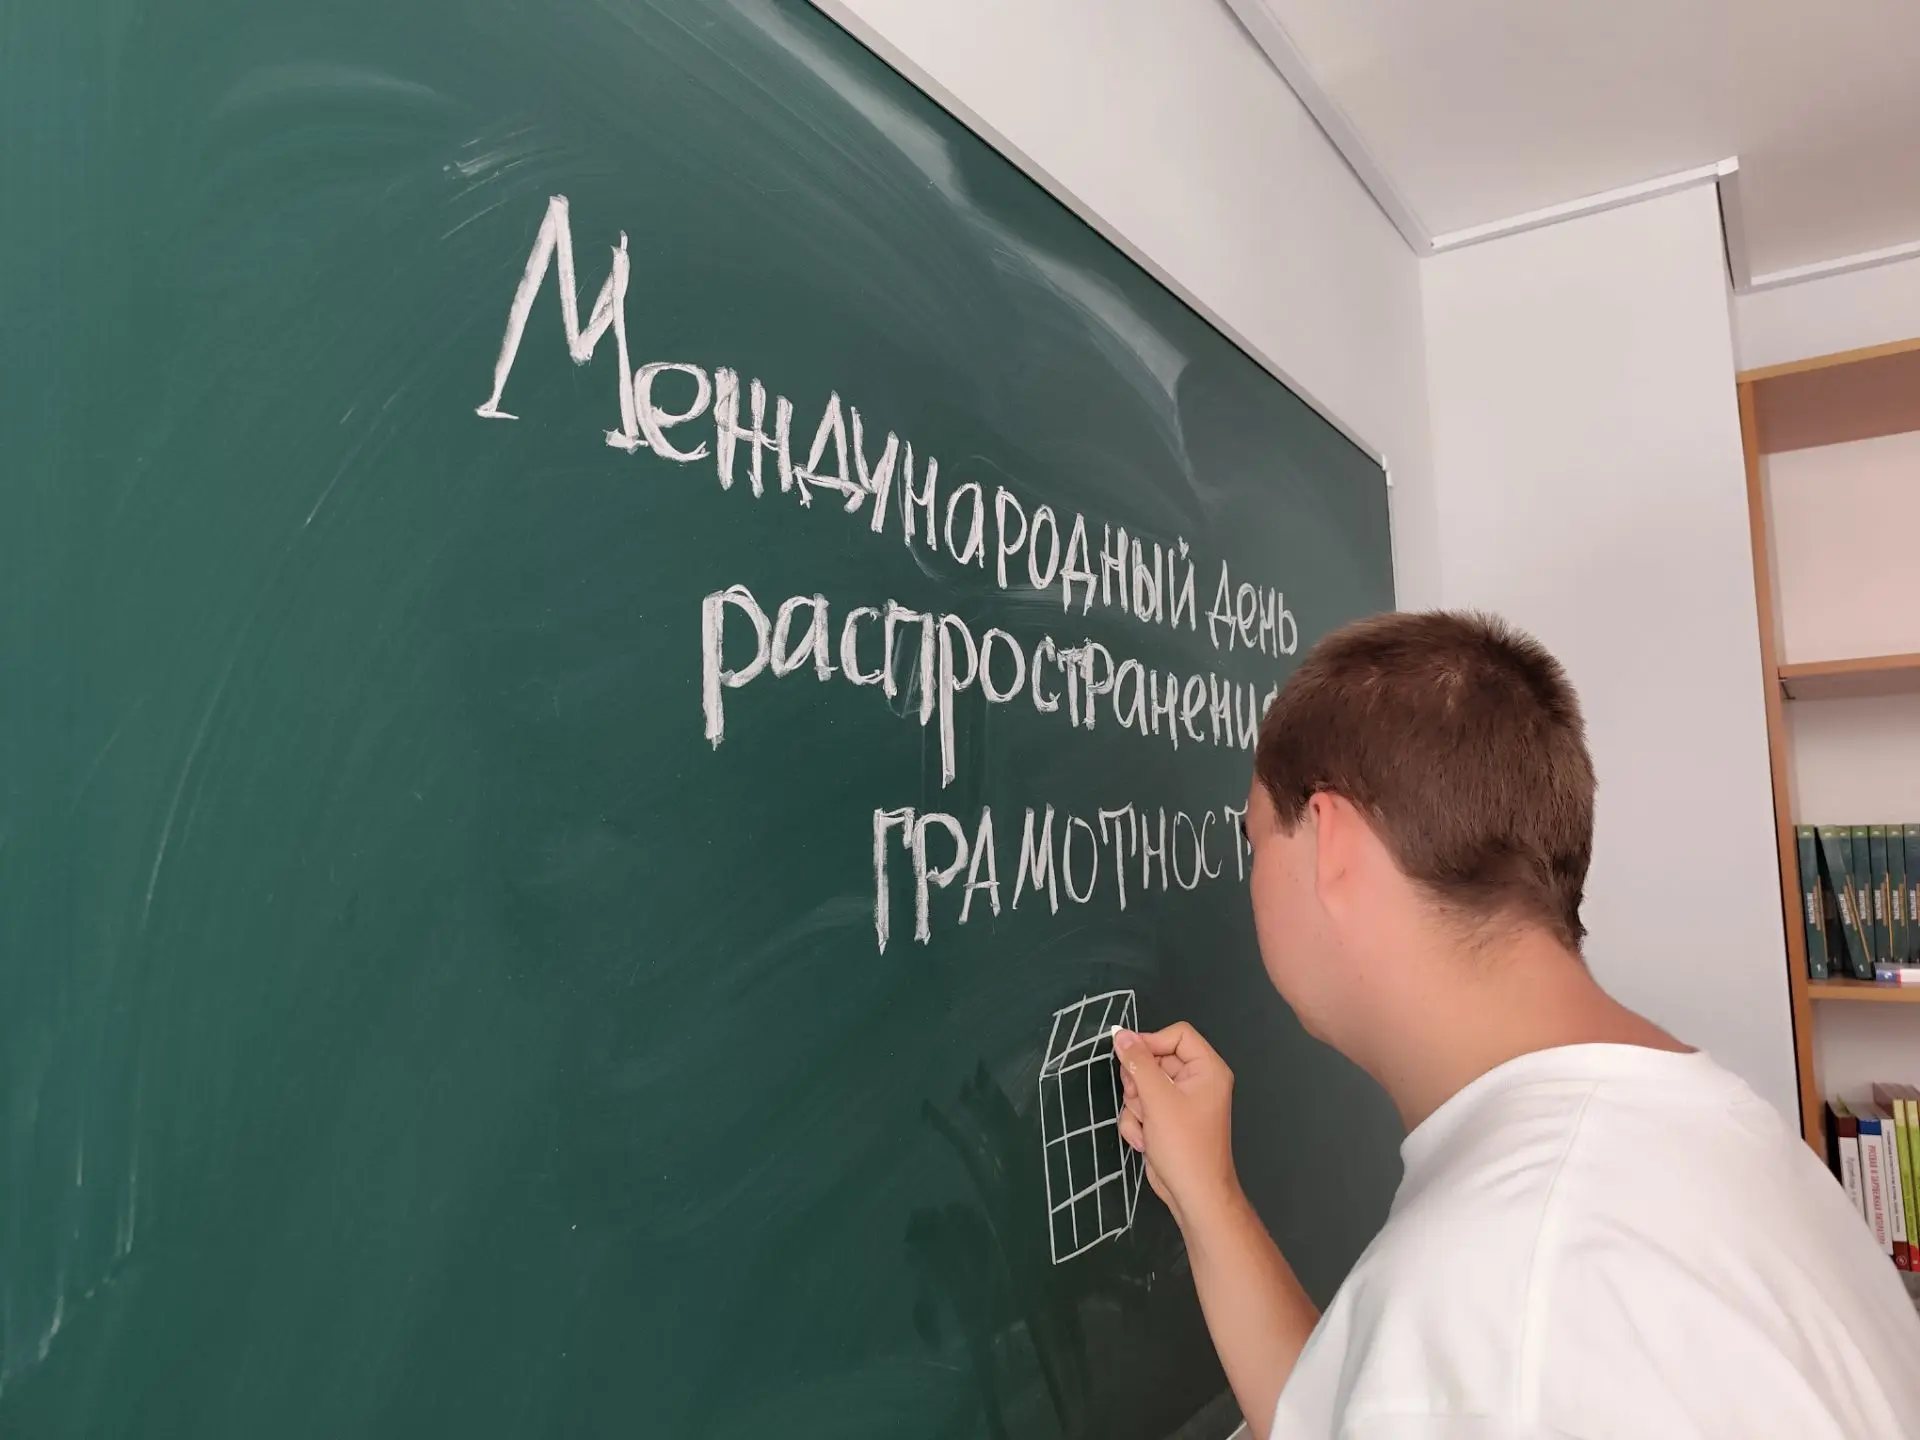 Международный день
распространени
ГРАМОТНОСТ